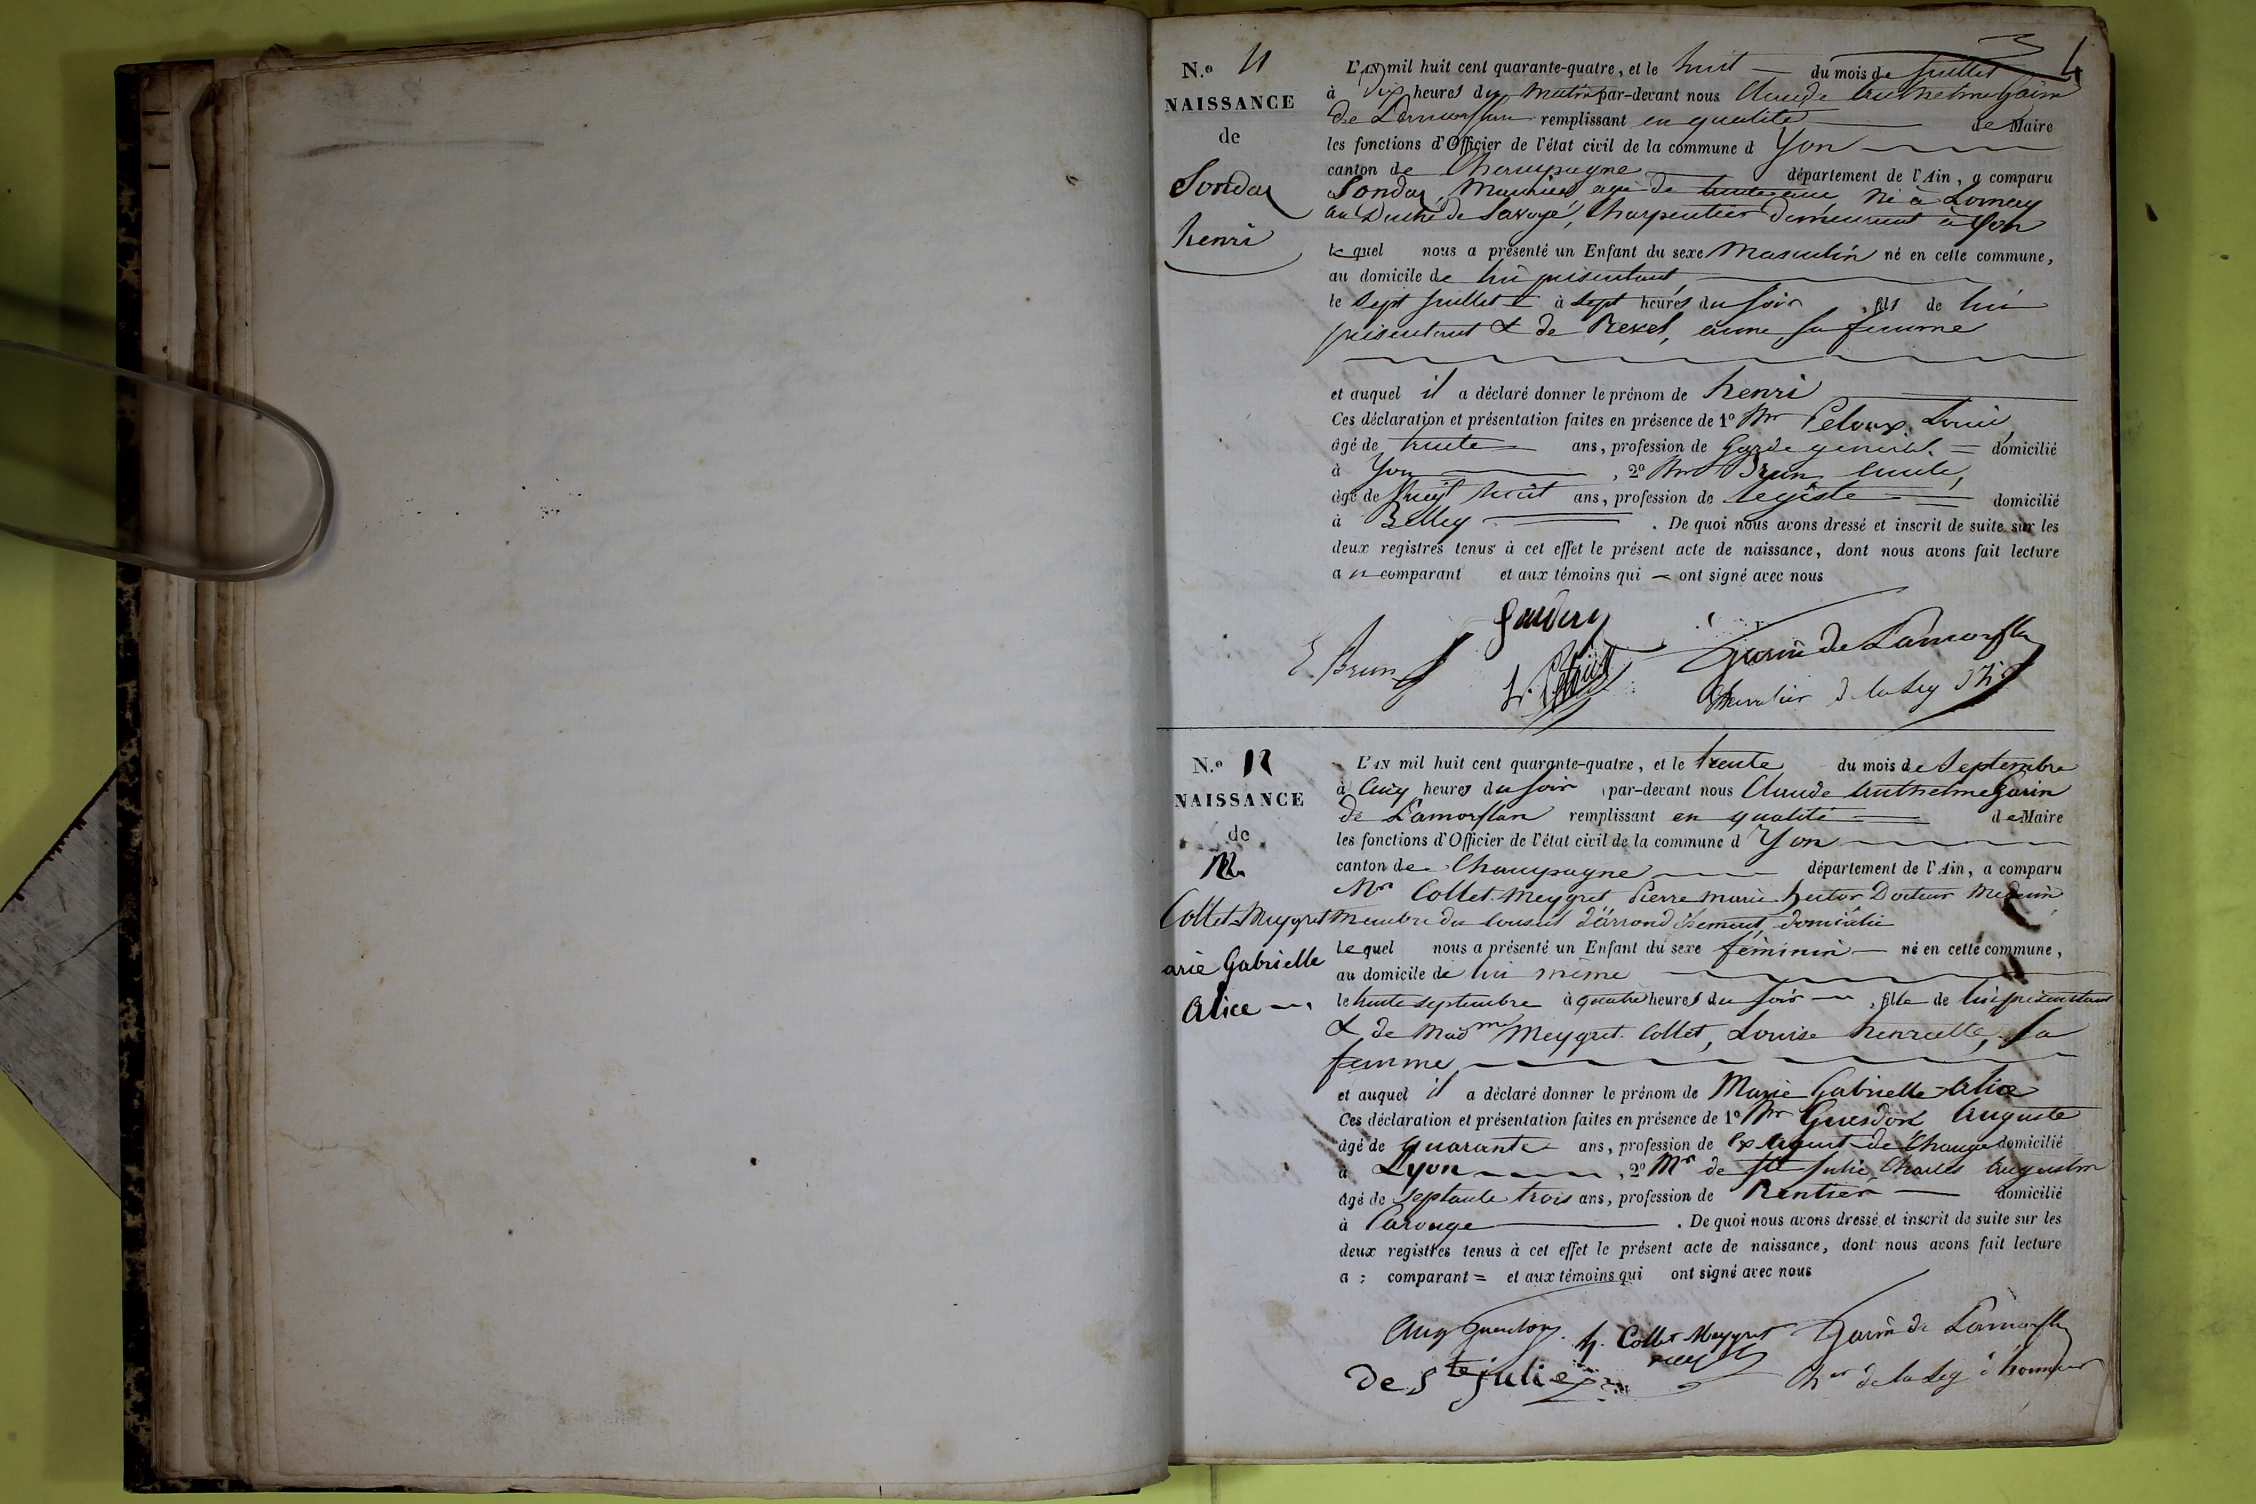 4
N.º 11
NAISSANCE
de
Sondaz
henri
L'AN mil huit cent quarante-quatre, et le huit du mois de Juillet
à dix heures du matin par-devant nous Claude Anthelme Garin
de Lamorflan remplissant en qualité de Maire
les fonctions d'Officier de l'état civil de la commune d Yon
canton de Champagne département de l'Ain, a comparu
Sondaz, Maurice, agé de trente Né à Lornay
au Duché de Savoye, Charpentier demeurant à Yon
Lequel nous a présenté un Enfant du sexe Masculin né en cette commune,
au domicile de lui présentant,
le Sept Juillet à Sept heures du Soir, fils de lui
présentant & de sa femme
et auquel il a déclaré donner le prénom de henri
Ces déclaration et présentation faites en présence de 1º Mr Peloux Louis
âgé de trente ans, profession de Garde général domicilié
à Yon, 2º Mr Brun Emile,
âgé de Vingt huit ans, profession de Légiste domicilié
à Belley. De quoi nous avons dressé et inscrit de suite sur les
deux registres tenus à cet effet le présent acte de naissance, dont nous avons fait lecture
au comparant et aux témoins qui ont signé avec nous
E. Brun
Garin de Lamorflan
Chevalier de la Leg d'h
N.º 12
NAISSANCE
de
Mlle
Collet-Meygret
arie Gabrielle
Alice
L'AN mil huit cent quarante-quatre, et le trente du mois de Septembre
à Cinq heures du soir par-devant nous Claude Anthelme Garin
de Lamorflan remplissant en qualité de Maire
les fonctions d'Officier de l'état civil de la commune d Yon
canton de Champagne département de l'Ain, a comparu
Mr Collet-Meygret, Pierre Marie hector Docteur Médecin
Membre du Conseil d'arrondissement, domicilié
Lequel nous a présenté un Enfant du sexe féminin né en cette commune,
au domicile de lui même
le trente septembre à quatre heures du soir, fille de lui présentant
& de Madme Meygret Collet, Louise henriette, Sa
femme
et auquel il a déclaré donner le prénom de Marie Gabrielle Alice
Ces déclaration et présentation faites en présence de 1º Mr Guesdon Auguste
âgé de quarante ans, profession de Ex Agent de Change domicilié
à Lyon, 2º Mr de Ste Julie Charles Augustin
âgé de Septante trois ans, profession de Rentier domicilié
à Carouge. De quoi nous avons dressé et inscrit de suite sur les
deux registres tenus à cet effet le présent acte de naissance, dont nous avons fait lecture
a comparant et aux témoins qui ont signé avec nous
Aug Guesdon h. Collet Meygret Garin de Lamorflan
de Ste julie Cher de la Leg d'honneur